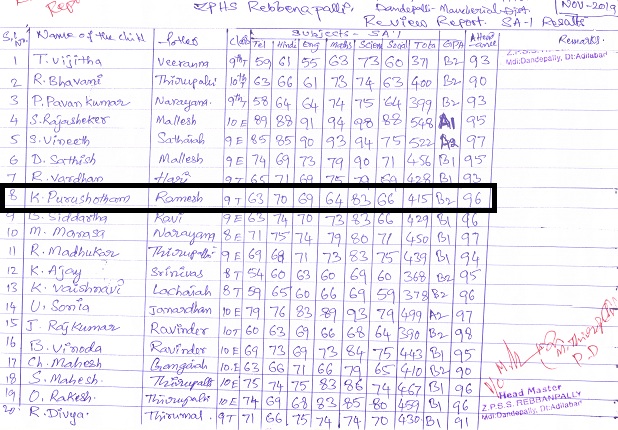 ZPHS Rebbenapally, Dandepally - Mancherial - Dist. NOV-2019
Review Report. SA-1 Results
Subjects - SA-1
S.No Name of the child Father Class Tel Hindi Eng Maths Scien Social Total GPA Attendance Remarks.
Z.P.S.S. REBBANPALLY
Mdl:Dandepally, Dt:Adilabad
1 T. Vijitha Veeranna 9th 59 61 55 63 73 60 371 B2 93
2 R. Bhavani Thirupathi 10th 63 66 61 73 74 63 400 B2 90
3 P. Pavan kumar Narayana 9th 58 64 64 74 75 64 399 B2 93
4 S. Rajasheker Mallesh 10 E 89 88 91 94 98 88 548 A1 95
5 S. Vineeth Sathaiah 9 E 85 85 90 93 94 75 522 A2 97
6 D. Sathish Mallesh 9 E 74 69 73 79 90 71 456 B1 95
7 R. Vardhan Hari 9T 65 71 69 75 428 B1 93
8 K. Purushotham Ramesh 9T 63 70 69 64 83 66 415 B2 96
9 B. Siddartha Ravi 9 E 63 74 70 73 83 66 429 B1 96
10 M. Manasa Narayana 8 E 71 75 74 79 80 71 450 B1 97
11 R. Madhukar Thirupathi 9 E 69 68 71 73 83 75 439 B1 94
12 K. Ajay Srinivas 8T 54 60 63 60 69 60 368 B2 95
13 K. Vaishnavi Lachaiah 8T 59 65 60 66 69 59 378 B2 96
14 U. Sonia Janardhan 10 E 79 76 83 89 93 79 499 A2 97
15 J. Rajkumar Ravinder 10T 60 63 69 66 68 64 390 B2 98
16 B. Vinoda Ravinder 10 E 73 69 73 84 75 443 B1 95
17 Ch. Mahesh Gangaiah 10 E 63 66 71 66 79 65 410 B2 90
18 S. Mahesh Thirupathi 10 E 75 74 75 83 86 74 467 B1 96
19 O. Rakesh Thirupathi 10 E 74 69 68 83 85 80 459 B1 96
20 R. Divya Thirumal 9T 71 66 75 74 74 70 430 B1 91
Head Master
Z.P.S.S. REBBANPALLY
Mdl:Dandepally, Dt:Adilabad